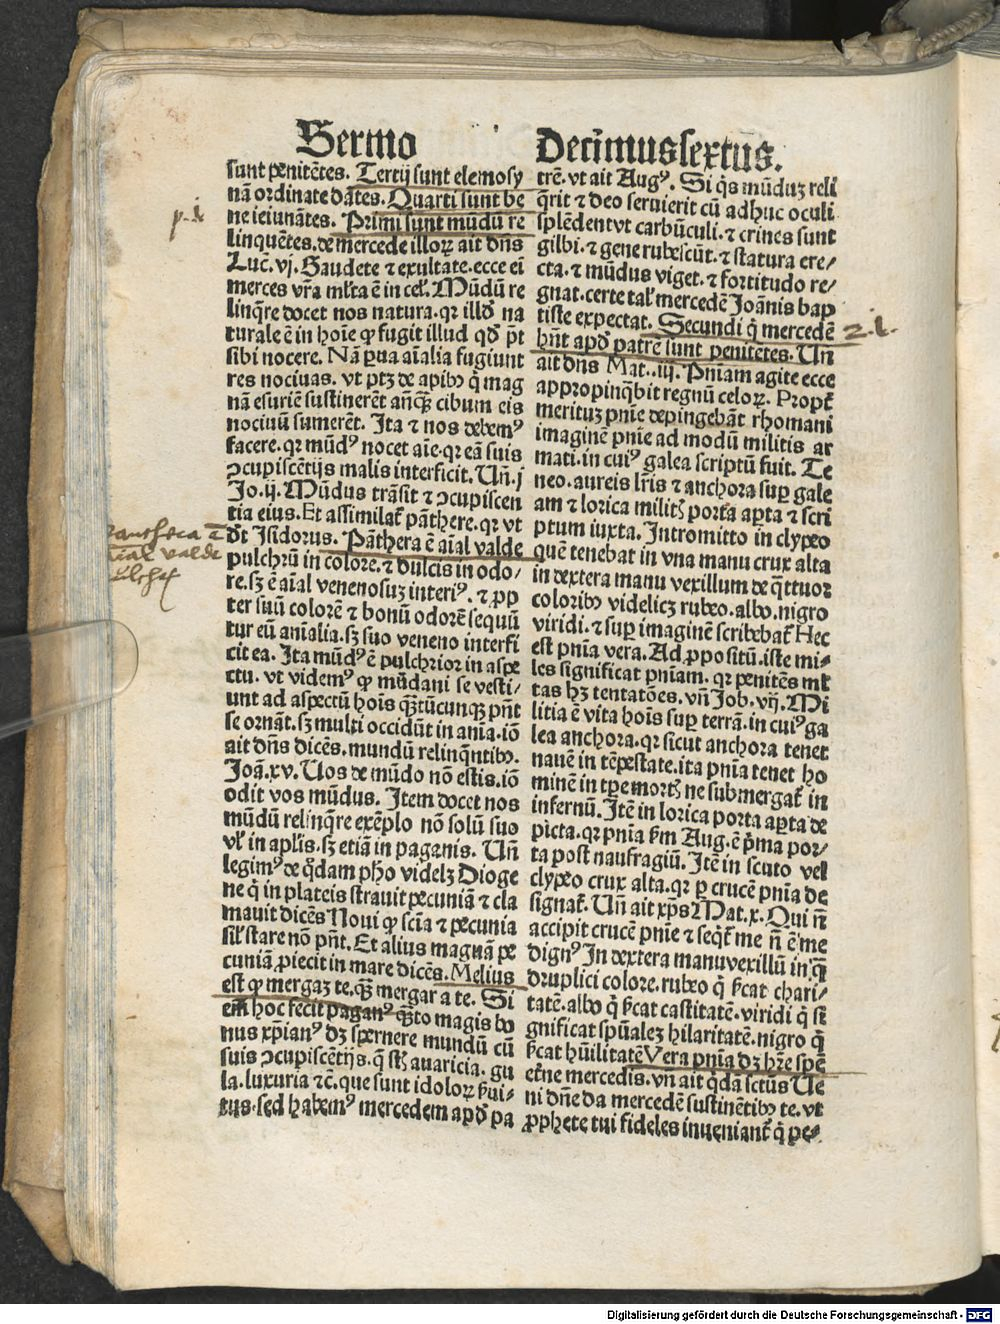 Sermo
sunt penitētes. Tertij sunt elemosy
nā ordinate dātes. Quarti sunt be
ne ieiunātes. Primi sunt mūdū re
linquētes. de mercede illoꝝ ait dn̄s
Luc̄. vj. Gaudete ⁊ exultate. ecce ei̅
merces vr̄a ml̄ta ē in cel̓. Mūdū re
linq̄re docet nos natura. qꝛ illd̓ na
turale ē in hoīe ꝙ fugit illud qd̓ p̄t
sibi nocere. Nā ꝑua aīalia fugiunt
res nociuas. vt ptꝫ de apibꝰ q̇ mag
nā esuriē sustinerēt an̄qꝫ cibum eis
nociuū sumerēt. Ita ⁊ nos debemꝰ
facere. qꝛ mūdꝰ nocet aīe. qꝛ eā suis
ↄcupiscētijs malis interficit. Un̄. j
Jo. ij. Mūdus trāsit ⁊ ↄcupiscen
tia eius. Et assimilat̓ pāthere. qꝛ vt
dt̄ Isidorus. Pāthera ē aīal valde
pulchrū in colore. ⁊ dulcis in odo⸗
re. sꝫ ē aīal venenosuꝫ interiꝰ. ⁊ ꝓp
ter suū colorē ⁊ bonū odorē sequū
tur eū anīalia. sꝫ suo veneno interfi
cit ea. Ita mūdꝰ ē pulchrior in aspe
ctu. vt videmꝰ ꝙ mūdani se vesti⸗
unt ad aspectū hoīs qꝫtūcunqꝫ pn̄t
se ornāt. sꝫ multi occidūt in anīa. iō
ait dn̄s dicēs. mundū relinq̄ntibꝰ.
Joā. xv. Uos de mūdo nō estis. iō
odit vos mūdus. Item docet nos
mūdū relinq̄re exēplo nō solū suo
vl̓ in apl̄is. sꝫ etiā in paganis. Un̄
legimꝰ de q̇dam ph̄o videlꝫ Dioge
ne q̇ in plateis strauit pecuniā ⁊ cla
mauit dicēs Noui ꝙ scīa ⁊ pecunia
sil̓ stare nō pn̄t. Et alius magnā pe
cuniā ꝓiecit in mare dicēs. Melius
est ꝙ mergaꝫ te. qꝫ mergar a te. Si
em̄ hoc fecit paganꝰ qꝫto magis bo
nus xp̄ianꝰ dꝫ spernere mundū cū
suis ↄcupiscētijs. q̄ sꝫ auaricia. gu
la. luxuria ⁊c̄. que sunt idoloꝝ ẜui⸗
tus. sed habemꝰ mercedem apd̓ pa
Decīmussextus.
trē. vt ait Augꝰ. Si q̇s mūduꝫ reli
q̄rit ⁊ deo seruierit cū adhuc oculi
splēdent vt carbūculi. ⁊ crines sunt
gilbi. ⁊ gene rubescūt. ⁊ statura ere⸗
cta. ⁊ mūdus viget. ⁊ fortitudo re⸗
gnat. certe tal̓ mercedē Joānis bap
tiste expectat. Secundi q̇ mercedē
hn̄t apd̓ patrē sunt penitētes. Un̄
ait dn̄s Mat. iij. Pn̄iam agite ecce
appropinq̄bit regnū celoꝝ. Propt̓
merituꝫ pn̄ie depingebāt rhomani
imaginē pn̄ie ad modū militis ar
mati. in cuiꝰ galea scriptū fuit. Te
neo. aureis lr̄is ⁊ anchora suꝑ gale
am ⁊ lorica milit̓ porta aꝑta ⁊ scri
ptum iuxta. Intromitto in clypeo
quē tenebat in vna manu crux alta
in dextera manu vexillum de q̄ttuor
coloribꝰ videlicꝫ rubeo. albo. nigro
viridi. ⁊ suꝑ imaginē scribebat̓ Hec
est pn̄ia vera. Ad ꝓpositū. iste mi⸗
les significat pn̄iam. qꝛ penitēs ml̄
tas hꝫ tentatōes. vn̄ Job. vij. Mi
litia ē vita hoīs suꝑ terrā. in cuiꝰ ga
lea anchora. qꝛ sicut anchora tenet
nauē in tēpestate. ita pn̄ia tenet ho
minē in tꝑe mort̓ ne submergat̓ in
infernū. Itē in lorica porta aꝑta de
picta. qꝛ pn̄ia ẜm Aug. ē pͥma por⸗
ta post naufragiū. Itē in scuto vel
clypeo crux alta. qꝛ ꝑ crucē pn̄ia de
signat̓. Un̄ ait xp̄s Mat. x. Qui nō
accipit crucē pn̄ie ⁊ seqt̓ me nō ē me
dignꝰ In dextera manu vexillū in q̄
druplici colore. rubeo q̇ ẜcat chari⸗
tatē. albo q̇ ẜcat castitatē. viridi q̇ si
gnificat spūaleꝫ hilaritatē. nigro q̇
ẜcat hūilitatē Vera pn̄ia dꝫ hr̄e spē
et̓ne mercedis. vn̄ ait q̇dā sctūs Ue
ni dn̄e da mercedē sustinētibꝰ te. vt
ꝓphete tui fideles inueniant̓ q̇ pe⸗
p. i
2. i.
panthera ē
aīal valde
pulchrū
Digitalisierung gefördert durch die Deutsche Forschungsgemeinschaft - DFG